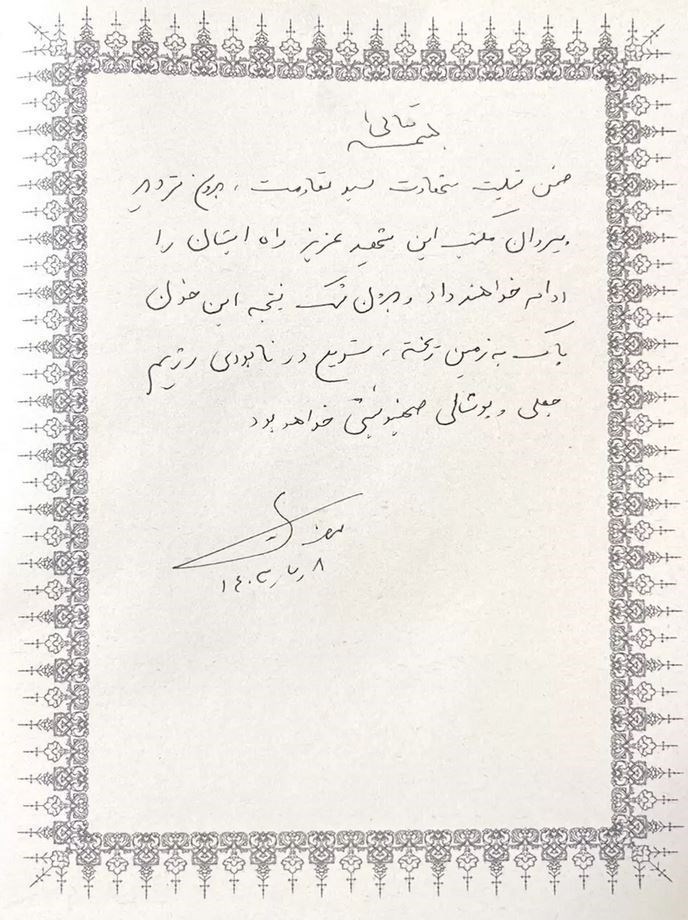 بسمه تعالی
ضمن تسلیت شهادت سید مقاومت، بدون تردید
پیروان مکتب این شهید عزیز راه ایشان را
ادامه خواهند داد و بدون شک نتیجه این خون
پاک به زمین ریخته، تسریع در نابودی رژیم
جعلی و پوشالی صهیونیستی خواهد بود
۱۴۰۳/۷/۸